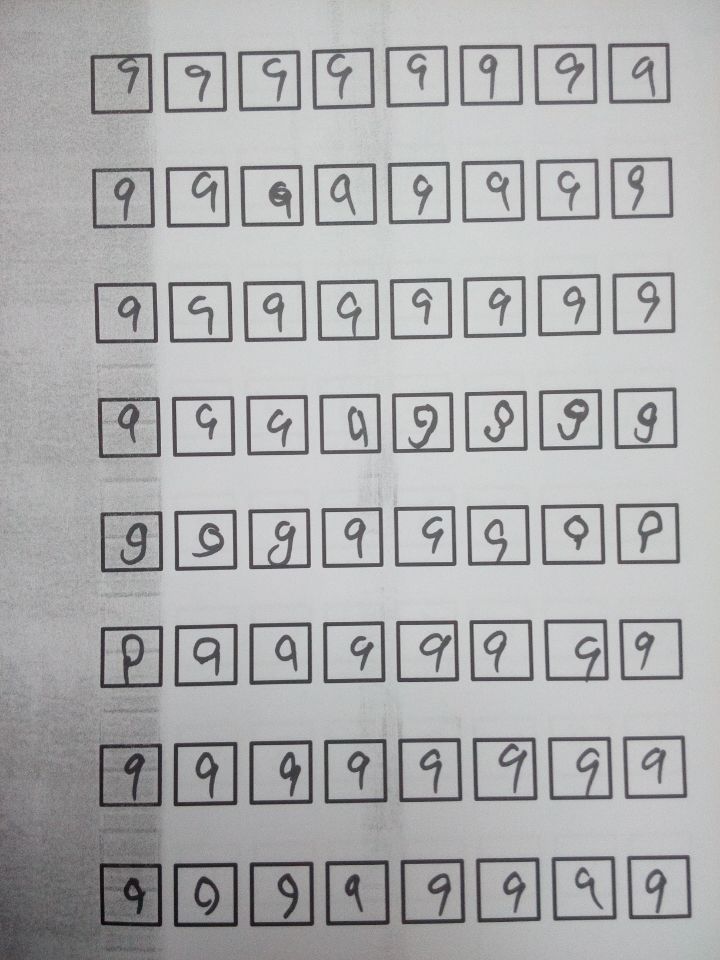 9 9 9 9 9 9 9 9
9 9 9 9 9 9 9 9
9 9 9 9 9 9 9 9
9 9 9 9 9 9 9 9
9 9 9 9 9 9 9 9
9 9 9 9 9 9 9 9
9 9 9 9 9 9 9 9
9 9 9 9 9 9 9 9